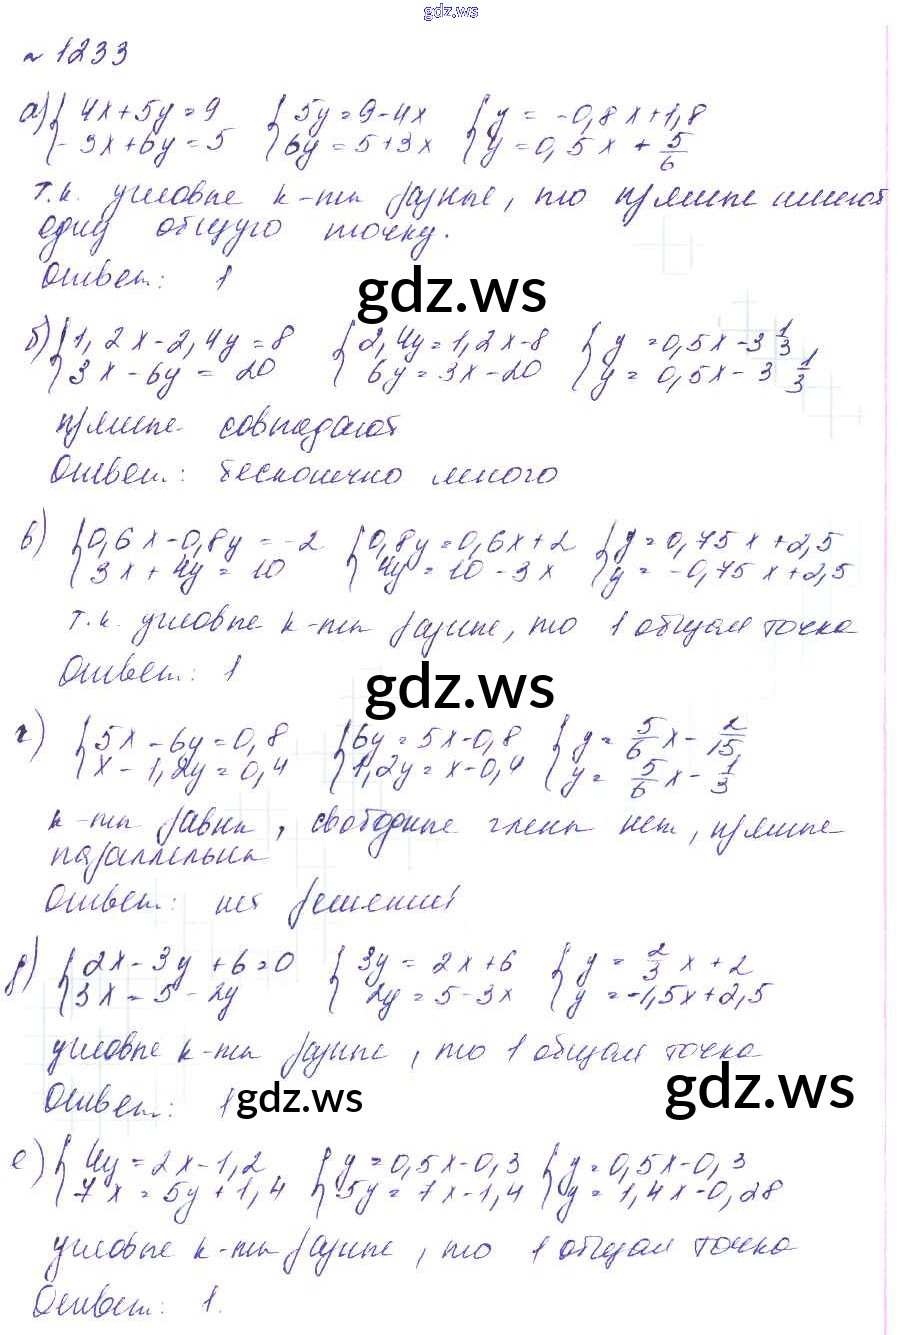 gdz.ws
№ 1233
а) { 4x+5y=9 { 5y=9-4x { y = -0,8x+1,8
-3x+6y=5 6y=5+3x y=0,5x + 5/6
т.к. угловые к-ты разные, то прямые имеют
одну общую точку.
Ответ: 1
gdz.ws
б) { 1,2x-2,4y=8 { 2,4y=1,2x-8 { y=0,5x-3 1/3
3x-6y=20 6y=3x-20 y=0,5x-3 1/3
прямые совпадают
Ответ: бесконечно много
в) { 0,6x-0,8y=-2 { 0,8y=0,6x+2 { y=0,75x+2,5
3x+4y=10 4y=10-3x y=-0,75x+2,5
т.к. угловые к-ты разные, то 1 общая точка
Ответ: 1
gdz.ws
г) { 5x-6y=0,8 { 6y=5x-0,8 { y=5/6x-2/15
x-1,2y=0,4 1,2y=x-0,4 y=5/6x-1/3
к-ты равны, свободные члены нет, прямые
параллельны
Ответ: нет решений
д) { 2x-3y+6=0 { 3y=2x+6 { y=2/3x+2
3x=5-2y 2y=5-3x y=-1,5x+2,5
угловые к-ты разные, то 1 общая точка
Ответ: 1
gdz.ws
gdz.ws
е) { 4y=2x-1,2 { y=0,5x-0,3 { y=0,5x-0,3
7x=5y+1,4 5y=7x-1,4 y=1,4x-0,28
угловые к-ты разные, то 1 общая точка
Ответ: 1.